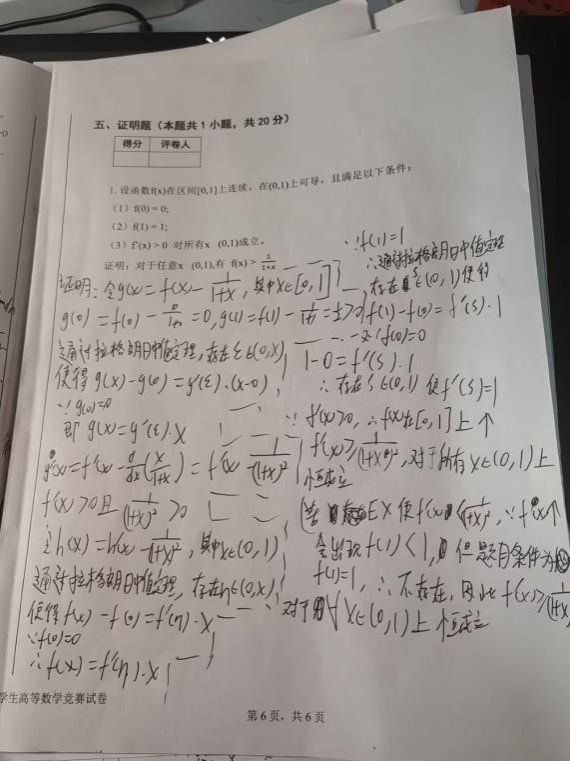 五、证明题（本题共1小题，共20分）
得分 评卷人
1. 设函数f(x)在区间[0,1]上连续，在(0,1)上可导，且满足以下条件：
（1）f(0) = 0;
（2）f(1) = 1;
（3）f'(x) > 0 对所有x (0,1)成立。
证明：对于任意x (0,1),有 f(x) >
证明：令g(x)=f(x)-\frac{x}{1+x}，其中x∈[0,1]
g(0)=f(0)-\frac{0}{1+0}=0,g(1)=f(1)-\frac{1}{1+1}=\frac{1}{2}>0
通过拉格朗日中值定理，存在ξ∈(0,x)
使得g(x)-g(0)=g'(ξ)·(x-0)
∵g(0)=0
即 g(x)=g'(ξ)·x
f'(x)>0且\frac{1}{(1+x)^2}>0
通过拉格朗日中值定理，存在η∈(0,x)
使得f(x)-f(0)=f'(η)·x
∵f(0)=0
∴f(x)=f'(η)·x
∵f(1)=1
∴通过拉格朗日中值定理
存在ξ∈(0,1)使得
f(1)-f(0)=f'(ξ)·1
又f(0)=0
1-0=f'(ξ)·1
∴存在ξ∈(0,1)使f'(ξ)=1
∵f'(x)>0,∴f(x)在[0,1]上↑
，对于所有x∈(0,1)上
恒成立
会出现f(1)<1,但题目条件为
f(1)=1,∴不存在，因此
对于∀x∈(0,1)上恒成立
学生高等数学竞赛试卷
第 6 页，共 6 页